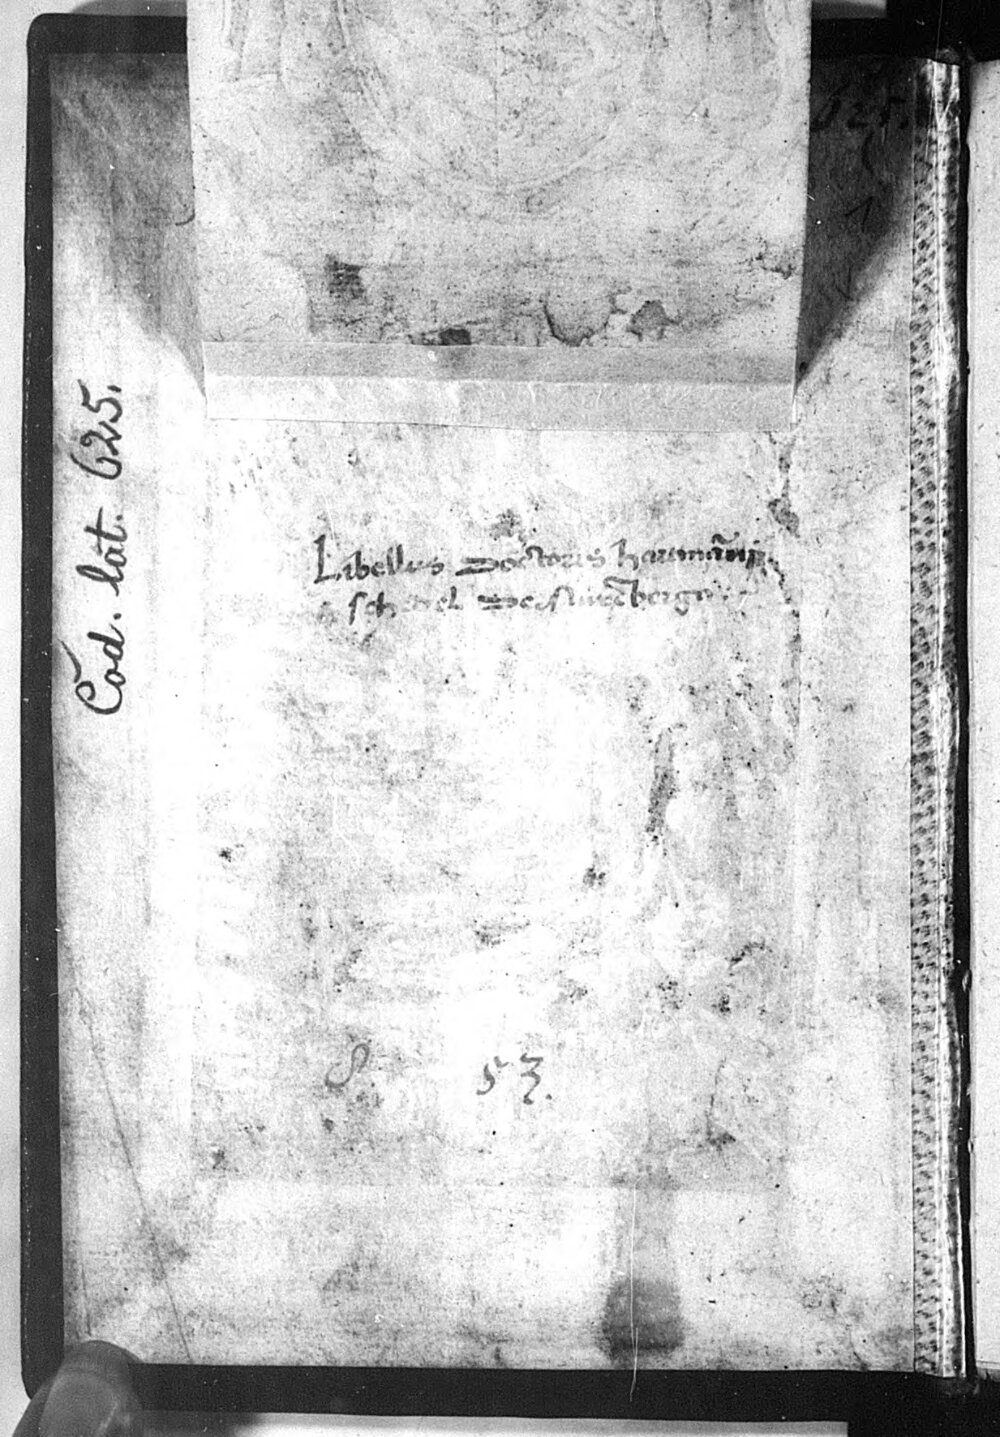 Cod. lat. 625.
Libellus Doctoris hartman̄i
schedel De Nurēberga
8 53.